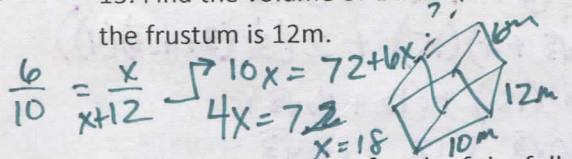 the frustum is 12m.
6/10 = x/x+12
10x = 72+6x
4x = 72
x = 18
?
6m
12m
10m